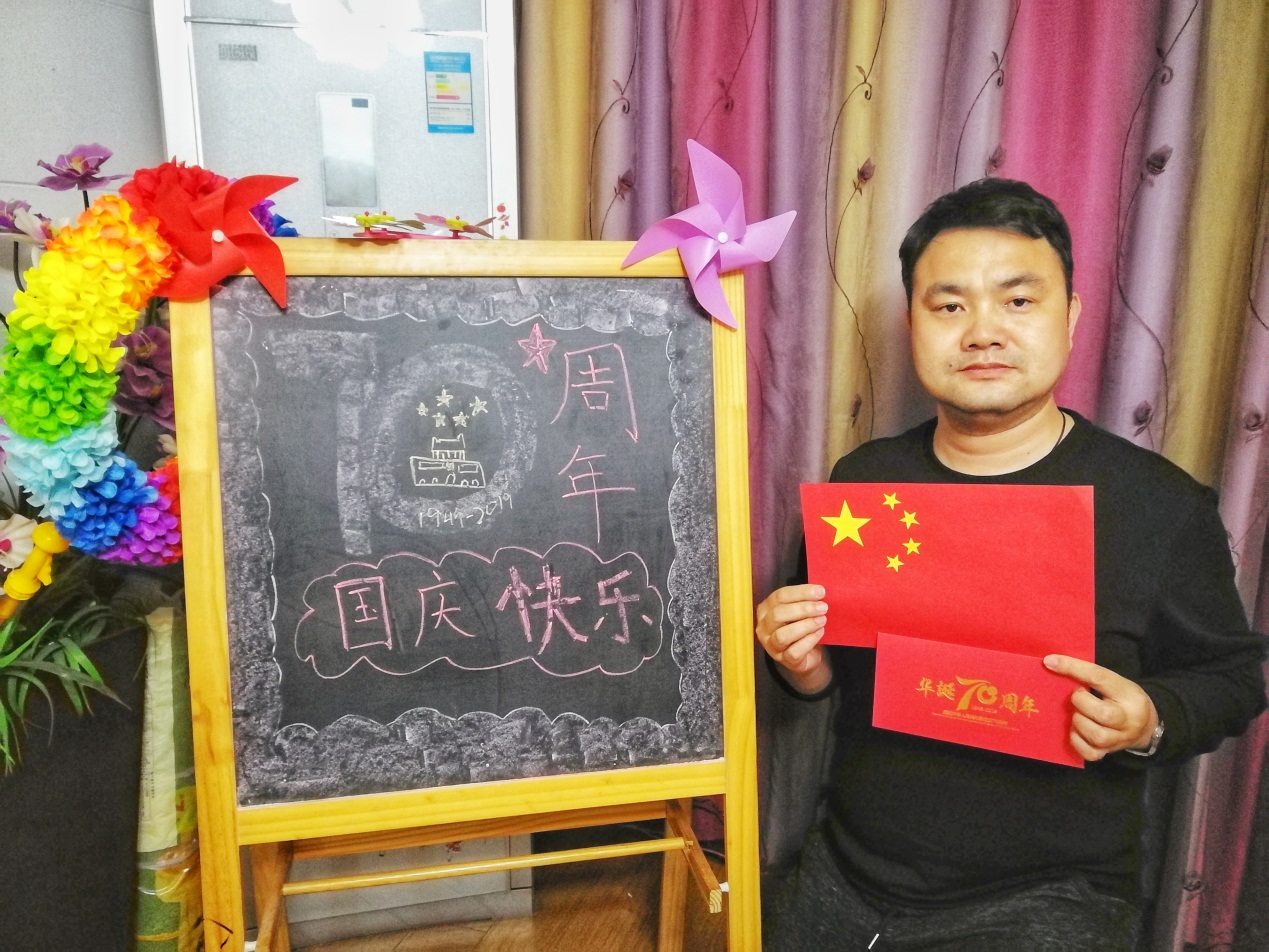 70
周年
1949-2019
国庆快乐
华誕70周年